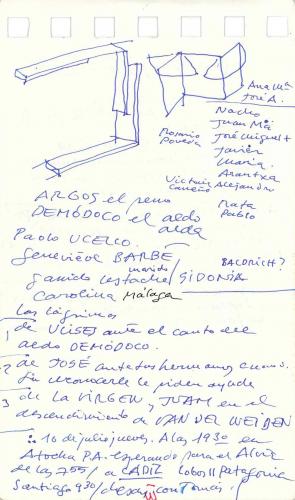 Ana Mª
José A.
Nacho
Juan Mª
José Miguel +
Javier
María
Arantxa
Rosario
Poveda
Victoria Alejandro
Rafa
Pablo
ARGOS el perro
DEMÓDOCO el aedo
aeda
Paolo UCELLO.
Geneviève BARBÉ
marido
BALDRICH?
SIDONIA
Carolina Málaga
Las lágrimas
1 de ULISES ante el canto del
aedo DEMÓDOCO.
2 de JOSÉ ante sus hermanos cuando
sin reconocerle le piden ayuda
3 de la VIRGEN y JUAN en el
descendimiento de VAN DER WEIDEN
10 de julio jueves. A las 1930 en
Atocha PA - esperando para el Alvia
de las 755 / a CADIZ lobos Patagonia
Santiago 930 / con Tomás